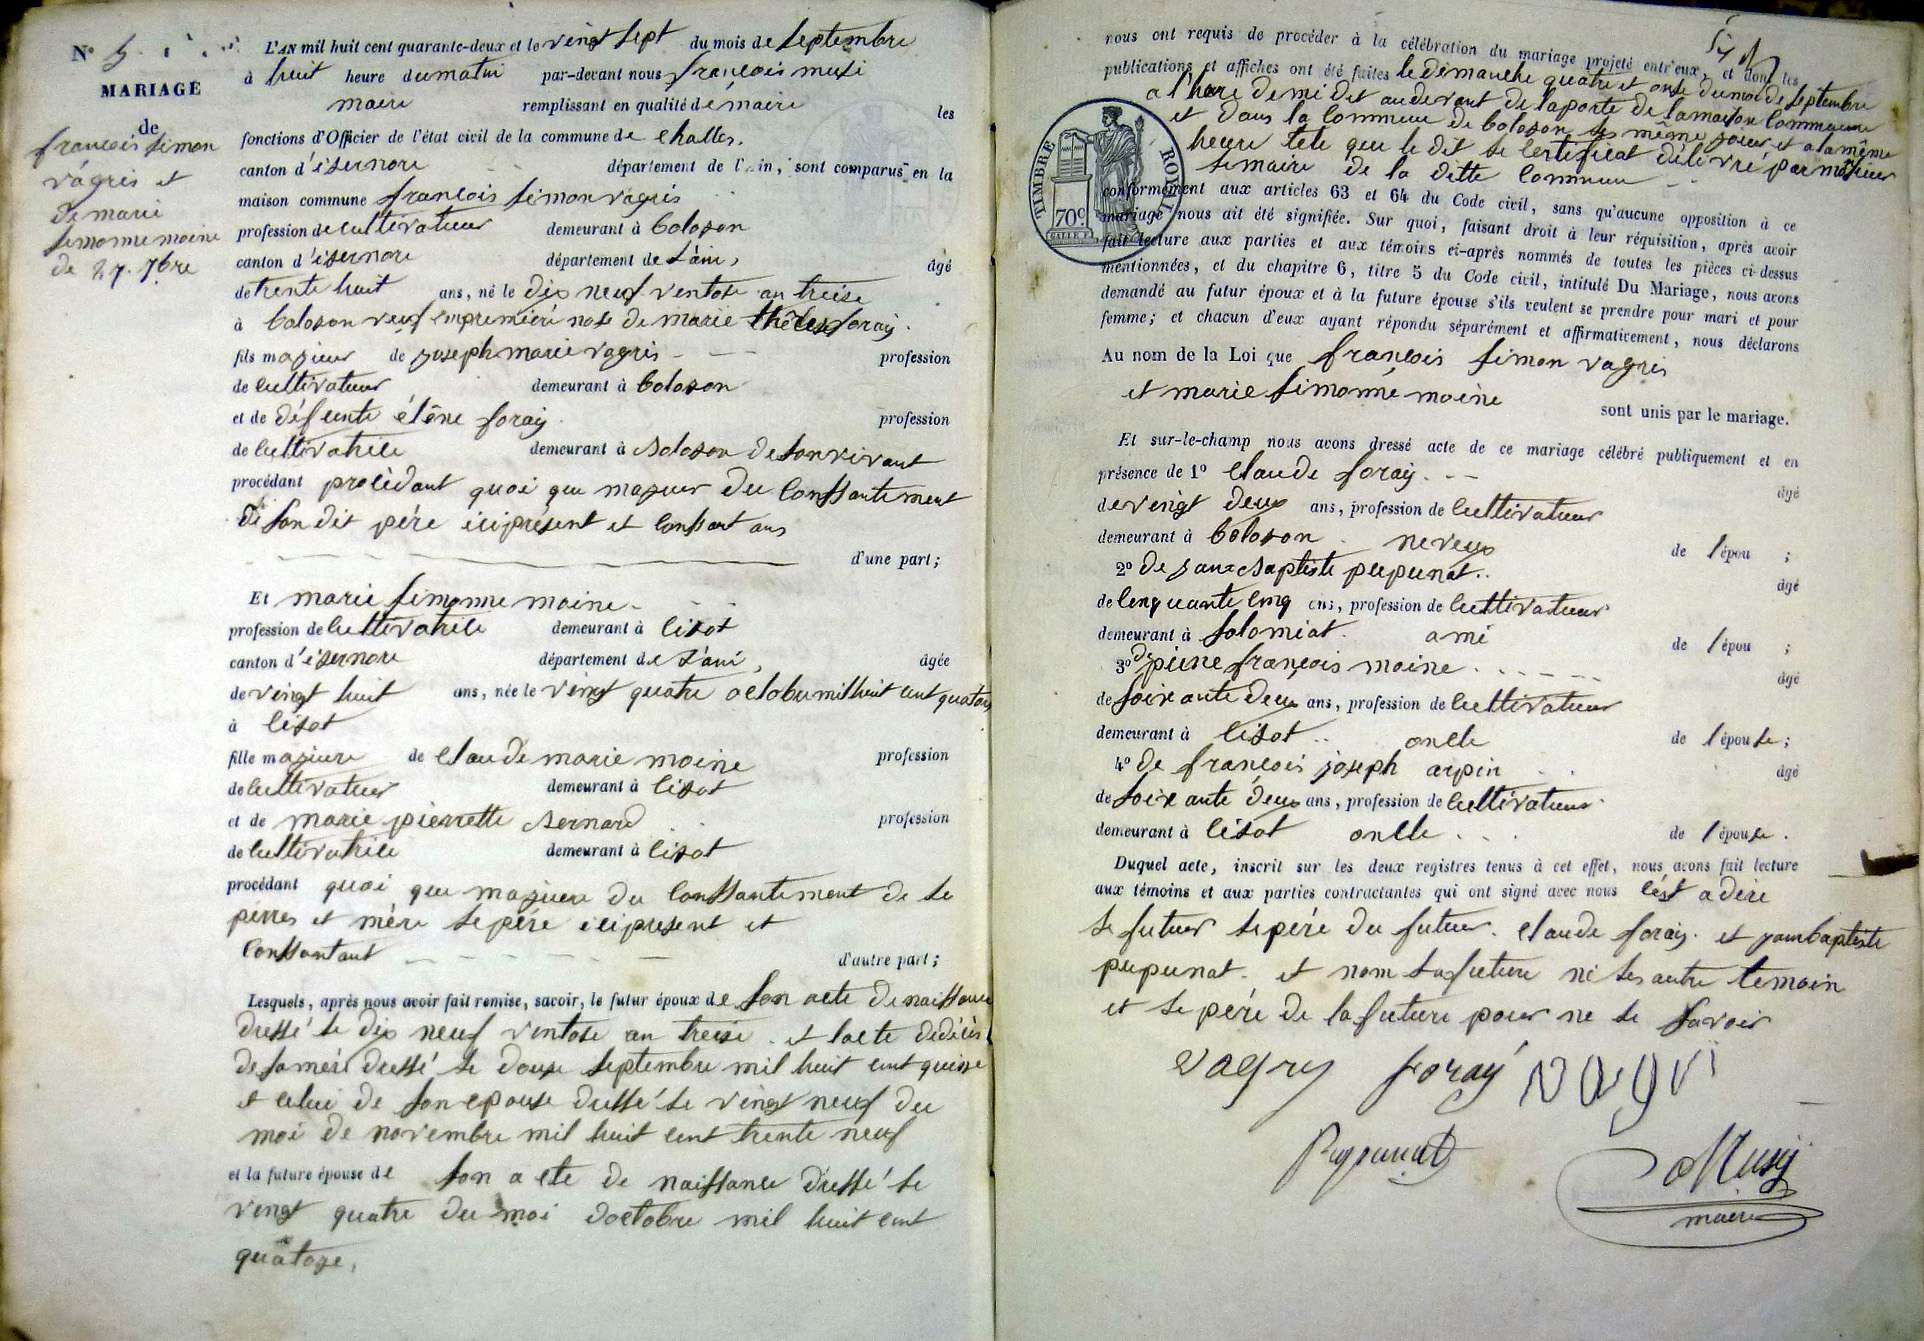 N° 5.
MARIAGE
de
françois simon
vâgris et
de marie
simonne moine
de 27. 7bre
L'AN mil huit cent quarante-deux et le vingt sept du mois de septembre
à huit heure du matin par-devant nous françois musi
maire remplissant en qualité de maire les
fonctions d'Officier de l'état civil de la commune de challes,
canton d'isernore département de l'Ain, sont comparus en la
maison commune françois simon vagris
profession de cultivateur demeurant à boloson
canton d'isernore département de L'ain, âgé
de trente huit ans, né le dix neuf ventose an treise
à boloson veuf en premiere nose de marie thérèse foray.
fils majeur de joseph marie vagris profession
de cultivateur demeurant à boloson
et de défeunte élêne foray profession
de cultivatrice demeurant à boloson de son vivant
procédant procédant quoi que majeur du conssantement
de son dit père ici présent et conssantans
d'une part;
Et marie simonne moine.
profession de cultivatrice demeurant à lisot
canton d'isernore département de L'ain, âgée
de vingt huit ans, née le vingt quatre octobre mil huit cent quatorse
à lisot
fille majeure de claude marie moine profession
de cultivateur demeurant à lisot
et de marie pierrette bernard profession
de cultivatrice demeurant à lisot
procédant quoi que majeure du conssantement de se
perres et mère le père ici present et
conssantant d'autre part;
Lesquels, après nous avoir fait remise, savoir, le futur époux de son acte de naissance
dressé le dix neuf ventose an treise et lacte dedécès
de samère dressé le douse septembre mil huit cent quinse
et celui de son epouse dressé le vingt neuf du
moi de novembre mil huit cent trente neuf
et la future épouse de son acte de naissance dressé le
vingt quatre du moi doctobre mil huit cent
quatorse,
nous ont requis de procéder à la célébration du mariage projeté entr'eux, et dont les
publications et affiches ont été faites le dimanche quatre et onse du moi de septembre
a l'heure de mi dit audevant de laporte de lamaison Commune
et dans la commune de boloson les même jours et a la même
heure tele que le dit le certificat délivré par monsieur
le maire de la ditte commune
TIMBRE ROYAL
70c
conformément aux articles 63 et 64 du Code civil, sans qu'aucune opposition à ce
mariage nous ait été signifiée. Sur quoi, faisant droit à leur réquisition, après avoir
fait lecture aux parties et aux témoins ci-après nommés de toutes les pièces ci-dessus
mentionnées, et du chapitre 6, titre 5 du Code civil, intitulé Du Mariage, nous avons
demandé au futur époux et à la future épouse s'ils veulent se prendre pour mari et pour
femme; et chacun d'eux ayant répondu séparément et affirmativement, nous déclarons
Au nom de la Loi que françois simon vagris
et marie simonne moine
sont unis par le mariage.
Et sur-le-champ nous avons dressé acte de ce mariage célébré publiquement et en
présence de 1° claude foray. âgé
de vingt deux ans, profession de cultivateur
demeurant à boloson neveux de l'épou ;
2° de janbaptiste pupunat.. âgé
de cinquante cinq ans, profession de cultivateur
demeurant à solomiat. ami de l'épou ;
3° de piere françois moine âgé
de soixante deux ans, profession de cultivateur
demeurant à lisot.. oncle de l'épouse;
4° de françois joseph arpin âgé
de soixante deux ans, profession de cultivateur
demeurant à lisot oncle de l'épouse.
Duquel acte, inscrit sur les deux registres tenus à cet effet, nous avons fait lecture
aux témoins et aux parties contractantes qui ont signé avec nous cést a dire
le futeur le père du futeur. claude foray. et janbaptiste
pupunat. et nom la future ni les autre témoin
et le père de la future pour ne le savoir
vagry foray vagri
Pupunat Musy
maire